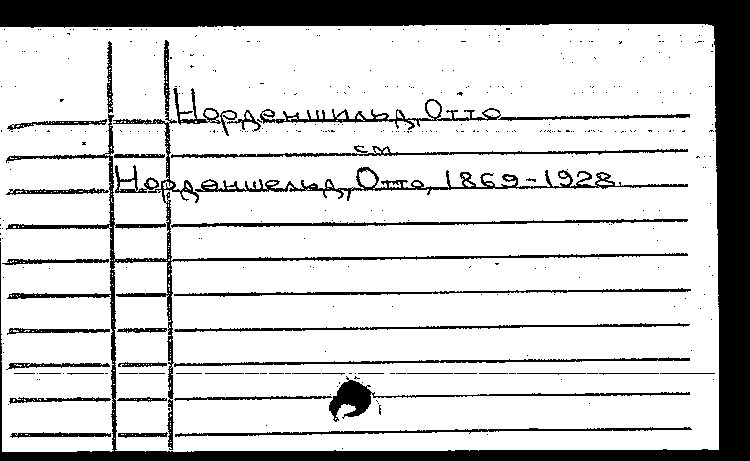 Норденшильд, Отто
см
Норденшельд, Отто, 1869-1928.